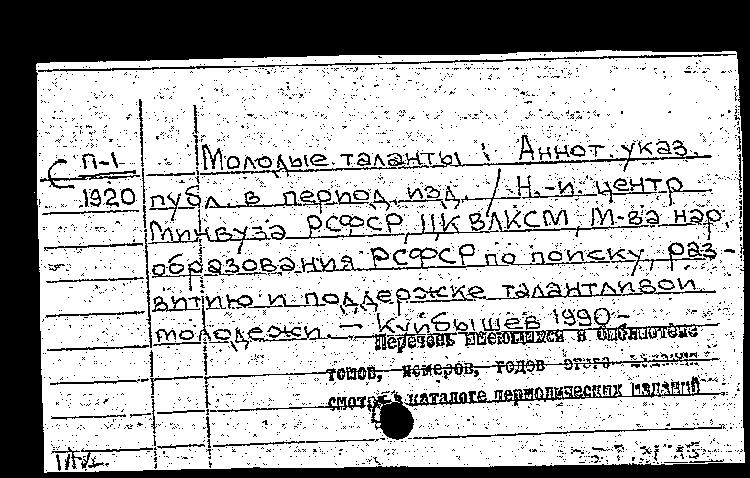 П-1 Молодые таланты : Аннот. указ.
С
1920 публ. в период. изд. / Н.-и. центр
Минвуза РСФСР, ЦК ВЛКСМ, М-ва нар.
образования РСФСР по поиску, раз-
витию и поддержке талантливой
молодежи. — Куйбышев 1990-
Перечень имеющихся в библиотеке
томов, номеров, годов этого издания
смотри в каталоге периодических изданий